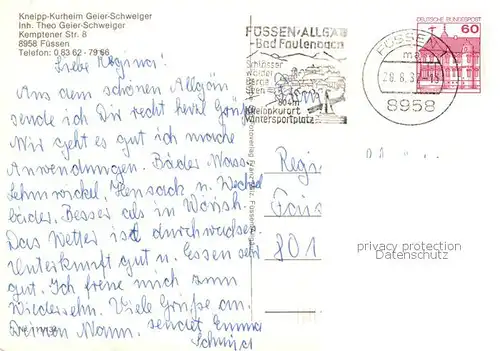 Kneipp-Kurheim Geier-Schweiger
Inh. Theo Geier-Schweiger
Kemptener Str. 8
8958 Füssen
Telefon: 0 83 62 - 79 66
Liebe Regina!
Aus dem schönen Allgäu
sende ich Dir recht herzl. Grüße
Mir geht es gut ich mache
Anwendungen. Bäder Wass.
Lehmwickel, Heusack u. Wechsel
bäder. Besser als in Wörish.
Das Wetter ist durchwachsen
Unterkunft gut u. Essen sehr
gut. Ich freue mich zum
Wiedersehn. Viele Grüße an
Deinen Mann. sendet Emma
Schmid
FÜSSEN/ALLGÄU
Bad Faulenbach
Schlösser
Wälder
Berge
Seen
Kneippkurort
Wintersportplatz
DEUTSCHE BUNDESPOST
60
FÜSSEN 1
ma
28.8.87-15
8958
Regi
801
privacy protection
Datenschutz